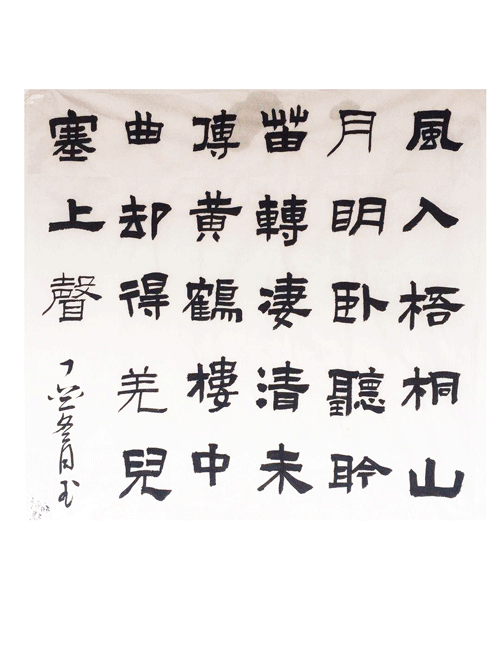 風入梧桐山
月明卧聽聆
笛轉淒清未
傳黄鶴樓中
曲却得羌兒
塞上聲
丁冬月